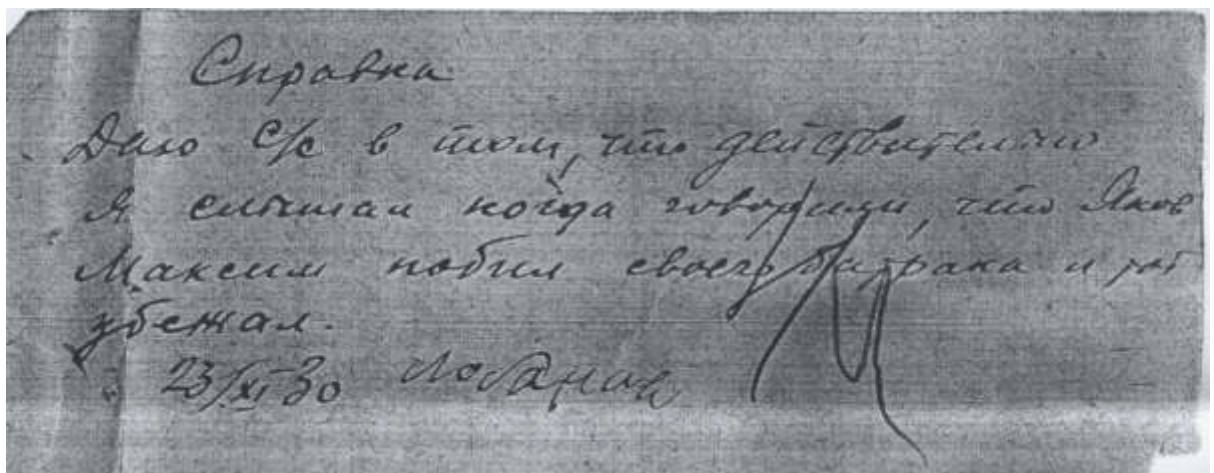 Справка
Даю с/с в том, что действительно
я слышал когда говорили, что Яков
Максим побил своего батрака и тот
убежал.
23/XI 30